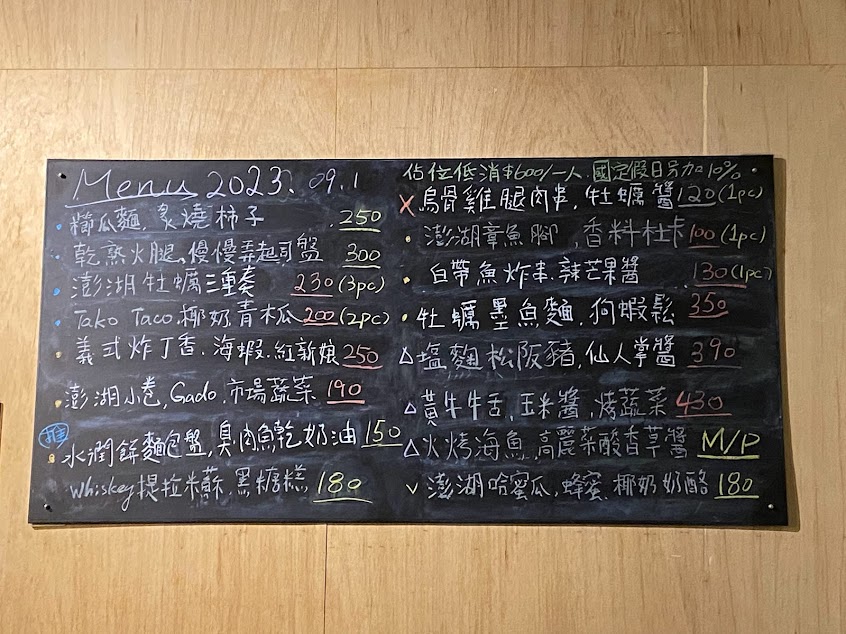 Menu 2023. 09.1
櫛瓜麵, 炙燒柿子 250
乾熟火腿、慢慢弄起司盤 300
澎湖牡蠣三重奏 230 (3pc)
Tako Taco, 椰奶, 青木瓜 200 (2pc)
義式炸丁香、海蝦、紅新娘 250
澎湖小卷, Gado, 市場蔬菜 190
推
水潤餅麵包盤, 臭肉魚乾奶油 150
Whiskey提拉米蘇, 黑糖糕 180
佔位低消$600/一人. 國定假日另加10%
X 烏骨雞腿肉串, 牡蠣醬 120 (1pc)
澎湖章魚腳, 香料杜卡 100 (1pc)
白帶魚炸串、辣芒果醬 130 (1pc)
牡蠣墨魚麵, 狗蝦鬆 350
△ 塩麴松阪豬, 仙人掌醬 390
△ 黃牛牛舌, 玉米醬, 烤蔬菜 430
△ 火烤海魚, 高麗菜酸香草醬 M/P
v 澎湖哈蜜瓜, 蜂蜜, 椰奶奶酪 180